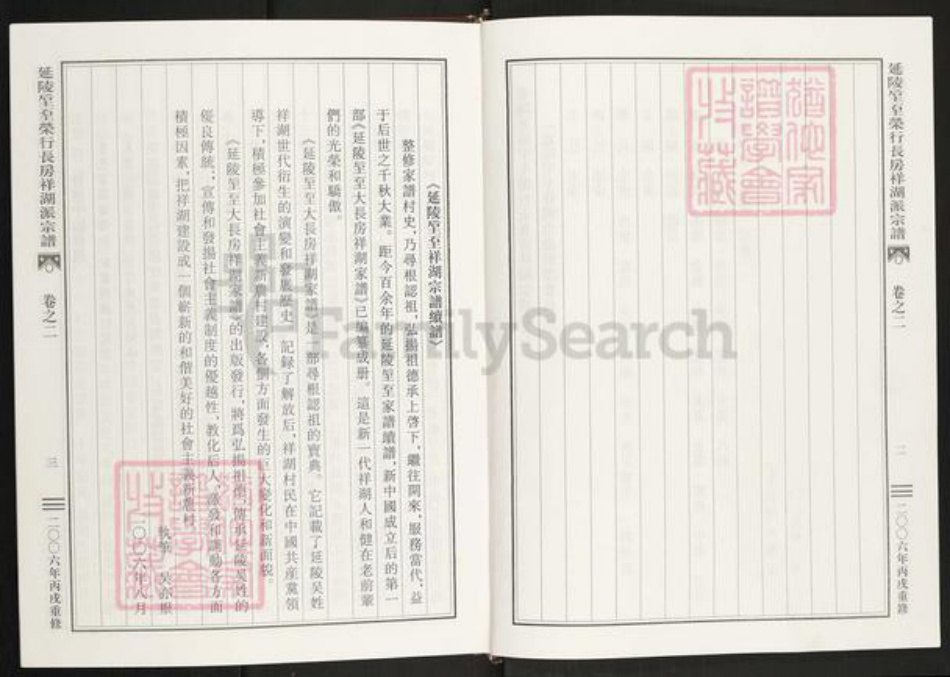 延陵㘴至榮行長房祥湖派宗譜
卷之二
二
二〇〇六年丙戌重修
猶他家譜學會收藏
《延陵㘴至祥湖宗譜續譜》
整修家譜村史,乃尋根認祖,弘揚祖德承上啓下,繼往開來、服務當代、益
于后世之千秋大業。距今百余年的延陵㘴至家譜續譜,新中國成立后的第一
部《延陵㘴至大長房祥湖家譜》已編纂成册。這是新一代祥湖人和健在老前輩
們的光榮和驕傲。
《延陵㘴至大長房祥湖家譜》是一部尋根認祖的寶典。它記載了延陵吴姓
祥湖世代衍生的演變和發展歷史,記録了解放后,祥湖村民在中國共産黨領
導下,積極參加社會主義新農村建設,各個方面發生的巨大變化和新面貌。
《延陵㘴至大長房祥湖家譜》的出版發行,將爲弘揚祖德,傳承延陵吴姓的
優良傳統;宣傳和發揚社會主義制度的優越性、教化后人,激發和調動各方面
積極因素,把祥湖建設成一個嶄新的和偕美好的社會主義新農村。
執筆 吴
二〇〇六年八月
延陵㘴至榮行長房祥湖派宗譜
卷之二
三
二〇〇六年丙戌重修
猶他家譜學會收藏
FamilySearch